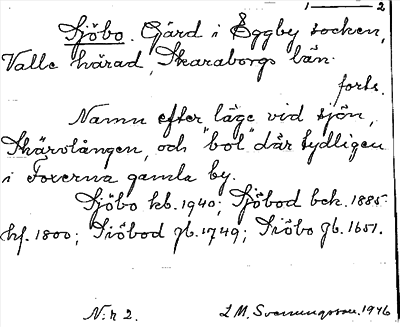 1 — 2
Sjöbo. Gård i Eggby socken,
Valle härad, Skaraborgs län.
forts.
Namn efter läge vid sjön,
Skärvlången, och "bol" där tydligen
i Foxerna gamla by.
Sjöbo kb. 1940; Sjöbod bek. 1885-
hf. 1800; Siöbod gb. 1749; Siöbo gb. 1651.
N:r 2.
L M. Svenungsson. 1946